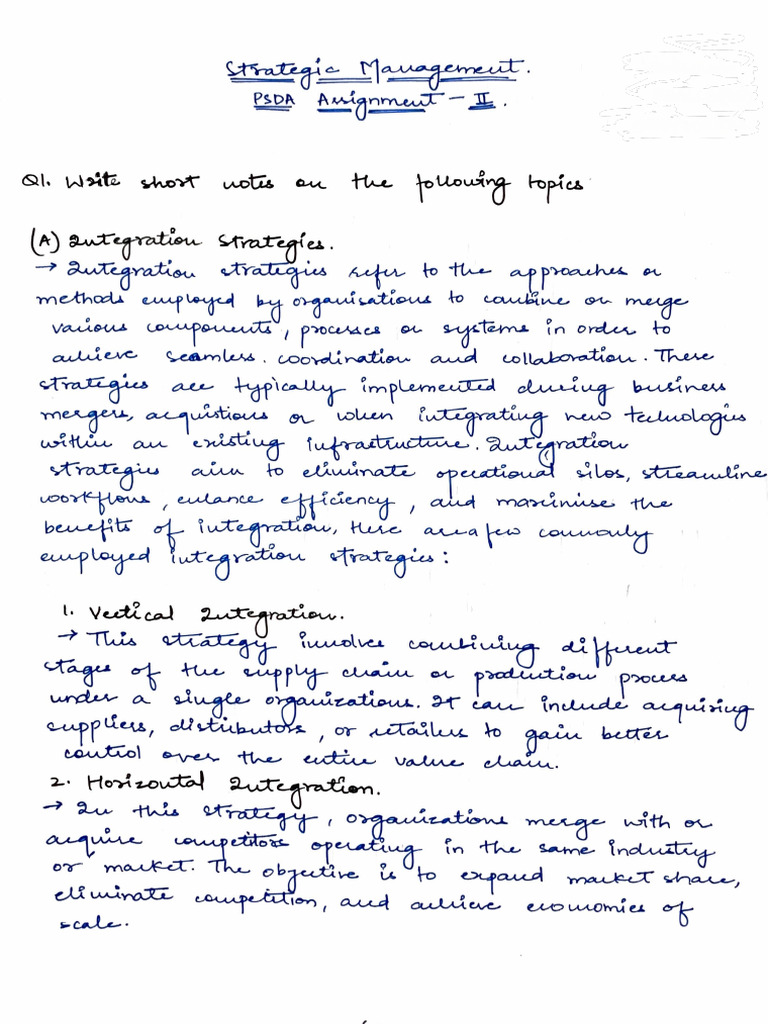 Strategic Management.
PSDA Assignment - II.
Q1. Write short notes on the following topics
(A) Integration Strategies.
→ Integration strategies refer to the approaches or
methods employed by organisations to combine or merge
various components, processes or systems in order to
achieve seamless. coordination and collaboration. These
strategies are typically implemented during business
mergers, acquistions or when integrating new technologies
within an existing infrastructure. Integration
strategies aim to eliminate operational silos, streamline
workflows, enhance efficiency, and maximise the
benefits of integration, Here are a few commonly
employed integration strategies:
1. Vertical Integration.
→ This strategy involves combining different
stages of the supply chain or production process
under a single organizations. It can include acquiring
suppliers, distributors, or retailers to gain better
control over the entire value chain.
2. Horizontal Integration.
→ In this strategy, organizations merge with or
acquire competitors operating in the same industry
or market. The objective is to expand market share,
eliminate competition, and achieve economies of
scale.